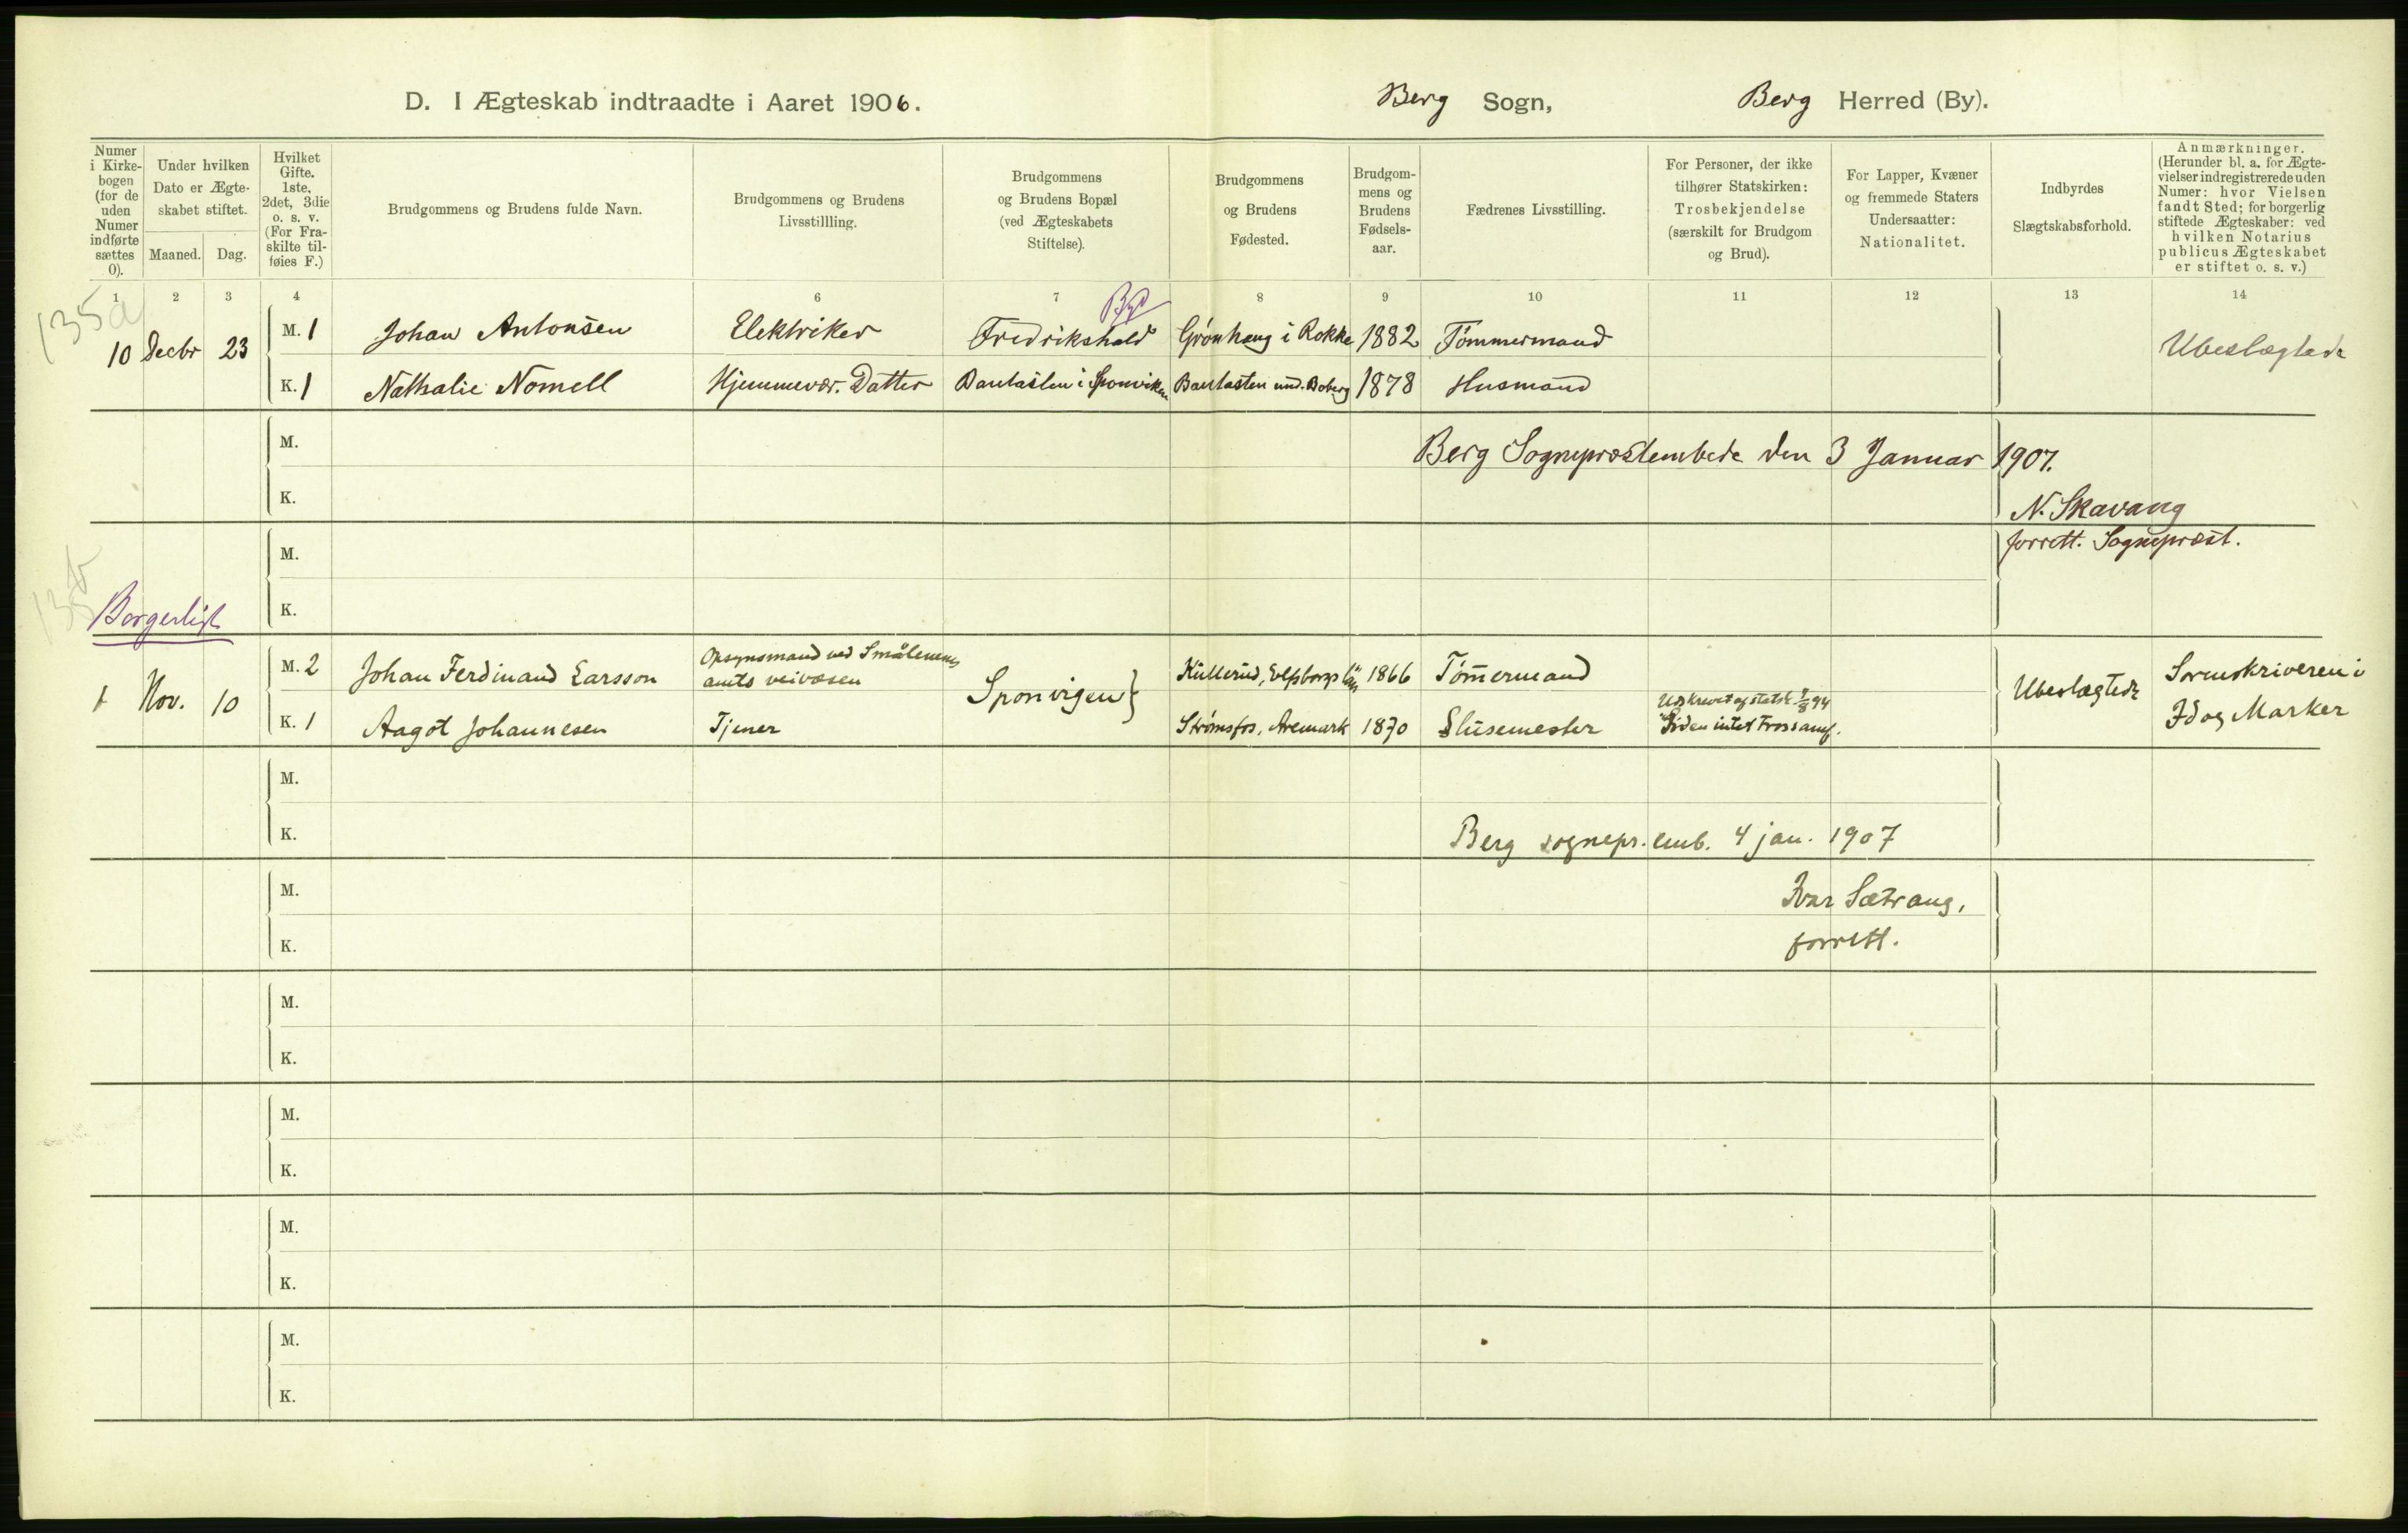 D. I Ægteskab indtraadte i Aaret 1906. Berg Sogn, Berg Herred (By).
Numer i Kirkebogen (for de uden Numer indførte sættes 0).
Under hvilken Dato er Ægteskabet stiftet.
Maaned. Dag.
Hvilket Gifte. 1ste, 2det, 3die o. s. v. (For Fraskilte tilføies F.)
Brudgommens og Brudens fulde Navn.
Brudgommens og Brudens Livsstillling.
Brudgommens og Brudens Bopæl (ved Ægteskabets Stiftelse).
Brudgommens og Brudens Fødested.
Brudgommens og Brudens Fødselsaar.
Fædrenes Livsstilling.
For Personer, der ikke tilhører Statskirken: Trosbekjendelse (særskilt for Brudgom og Brud).
For Lapper, Kvæner og fremmede Staters Undersaatter: Nationalitet.
Indbyrdes Slægtskabsforhold.
Anmærkninger. (Herunder bl. a. for Ægtevielser indregistrerede uden Numer: hvor Vielsen fandt Sted; for borgerlig stiftede Ægteskaber: ved hvilken Notarius publicus Ægteskabet er stiftet o. s. v.)
1 2 3 4 6 7 8 9 10 11 12 13 14
135a
By
10 Decbr 23 M. 1 Johan Antonsen Elektriker Fredrikshald Grønhaug i Rokke 1882 Tømmermand Ubeslægtede
K. 1 Nathalie Nomell Hjemmevær. Datter Bautasten i Sponviken Bautasten und. Boberg 1878 Husmand
M. Berg Sogneprestembede den 3 Januar 1907.
K. N. Skavang
M. forrett. Sogneprest.
K.
135b
Borgerligt
1 Nov. 10 M. 2 Johan Ferdinand Larsson Opsynsmand ved Smålenenes amts veivæsen Sponvigen } Kullerud, Elfsborgs län 1866 Tømermand Ubeslægtede Sorenskriveren i
K. 1 Aagot Johannesen Tjener Strømsfos, Aremark 1870 Slusemester Udskrevet af statsk. 94 Siden intet Trossamf. Id og Marker
M.
K. Berg sognepr. emb. 4 jan. 1907
M. Ivar Sætrang,
K. forrett.
M.
K.
M.
K.
M.
K.
M.
K.